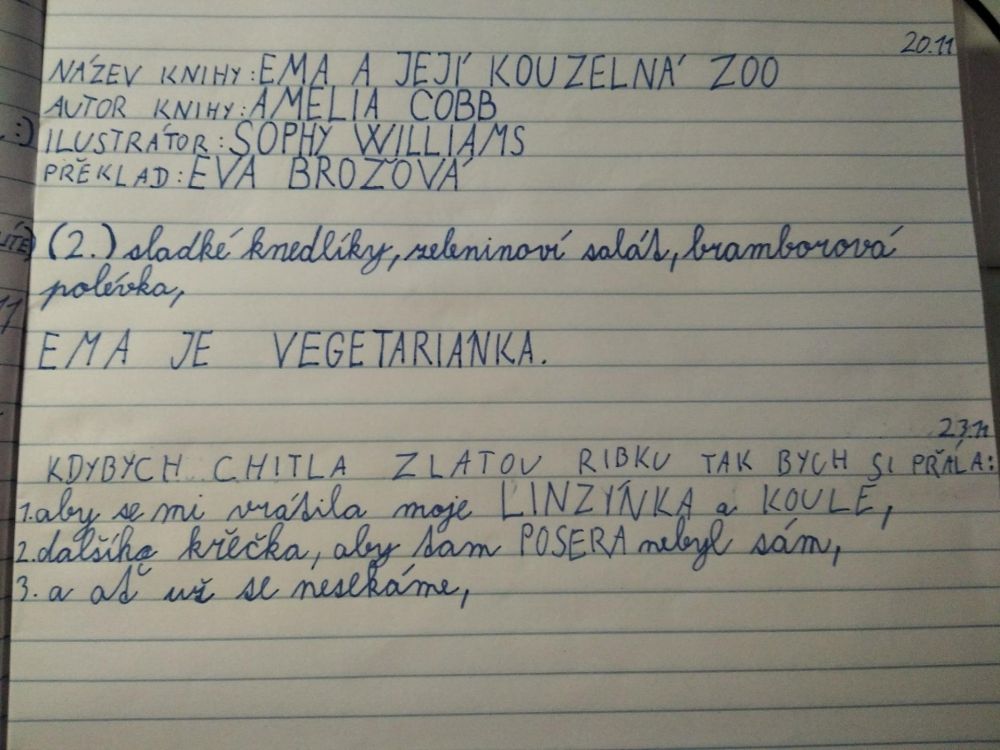 20.11
NÁZEV KNIHY: EMA A JEJÍ KOUZELNÁ ZOO
AUTOR KNIHY: AMELIA COBB
:)
ILUSTRÁTOR: SOPHY WILLIAMS
PŘEKLAD: EVA BROŽOVÁ
(2.) sladké knedlíky, zeleninoví salát, bramborová
polévka,
EMA JE VEGETARIANKA.
23.11
KDYBYCH CHITLA ZLATOU RIBKU TAK BYCH SI PŘÁLA:
1. aby se mi vrátila moje LINZÝNKA a KOULE,
2. dalšího křěčka, aby tam POSERA nebyl sám,
3. a ať už se nesekáme,